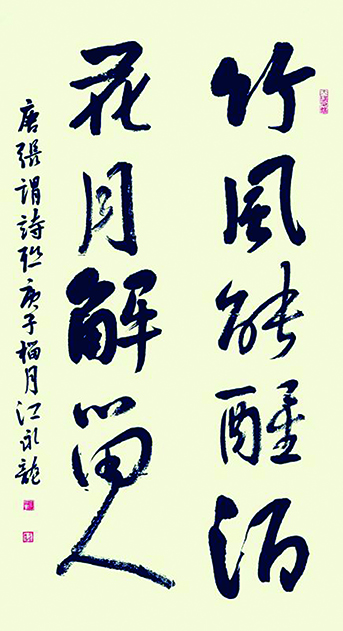 竹风能醒酒
花月解留人
唐張謂詩联庚子梅月江永龍